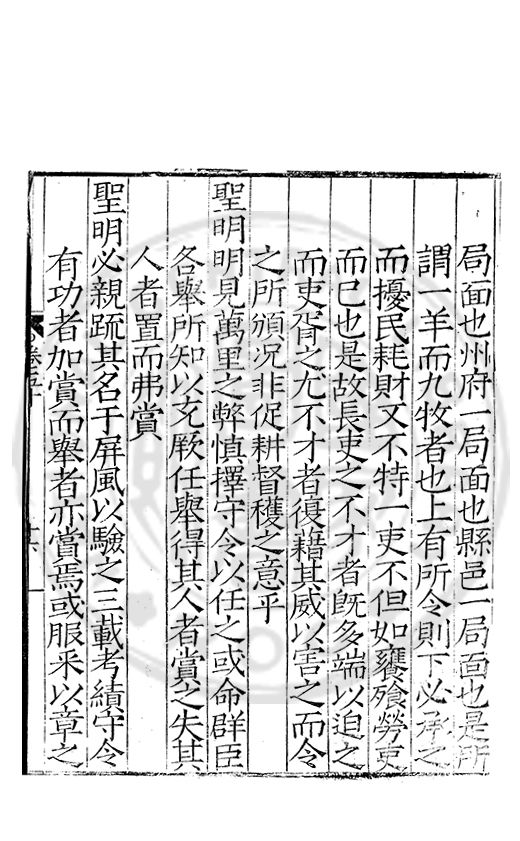 局面也州府一局面也縣邑一局面也是所
謂一羊而九牧者也上有所令則下必承之
而擾民耗財又不特一吏不但如饔飱勞吏
而已也是故長吏之不才者旣多端以迫之
而吏胥之尤不才者復藉其威以害之而令
之所頒况非促耕督穫之意乎
聖明明見萬里之弊慎擇守令以任之或命群臣
各舉所知以充厥任舉得其人者賞之失其
人者置而弗賞
聖明必親疏其名于屏風以驗之三載考績守令
有功者加賞而舉者亦賞焉或服釆以章之